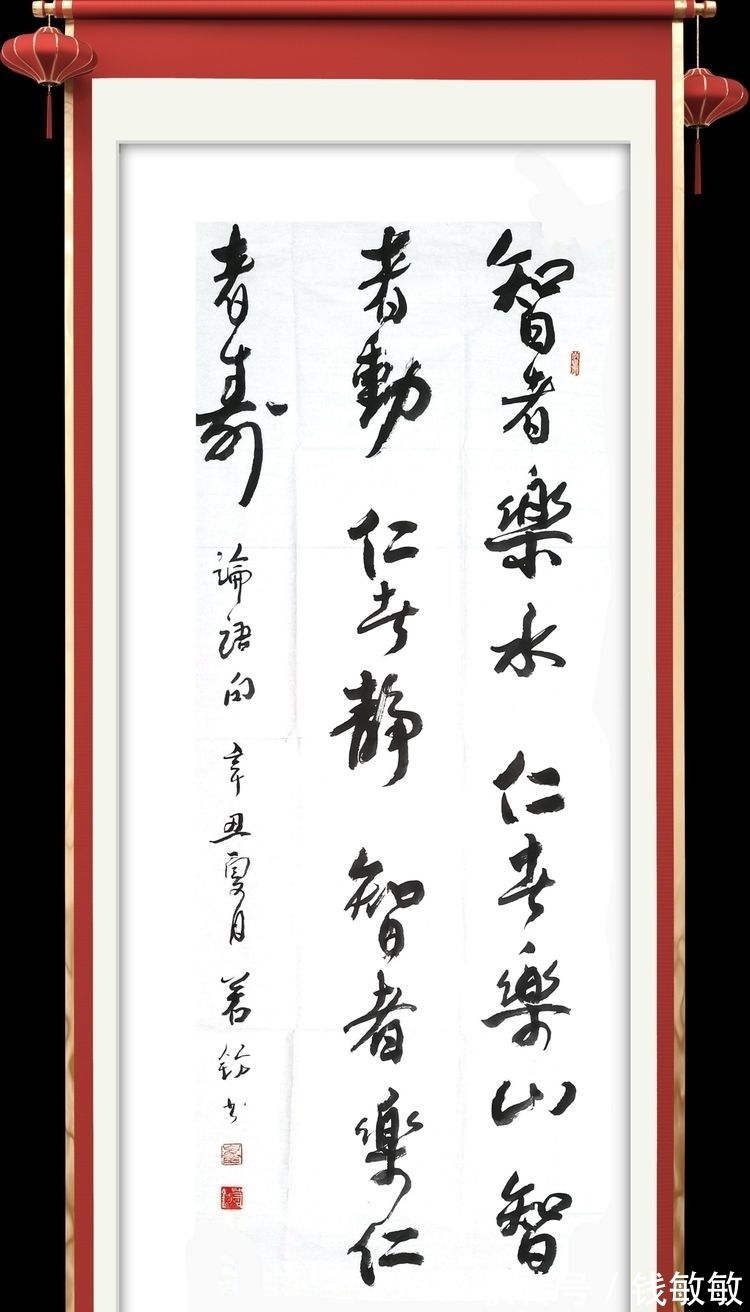 智者樂水 仁者樂山 智
者動 仁者靜 智者樂 仁
者壽 論語句 辛丑夏月 若鈁书
号/钱敏敏